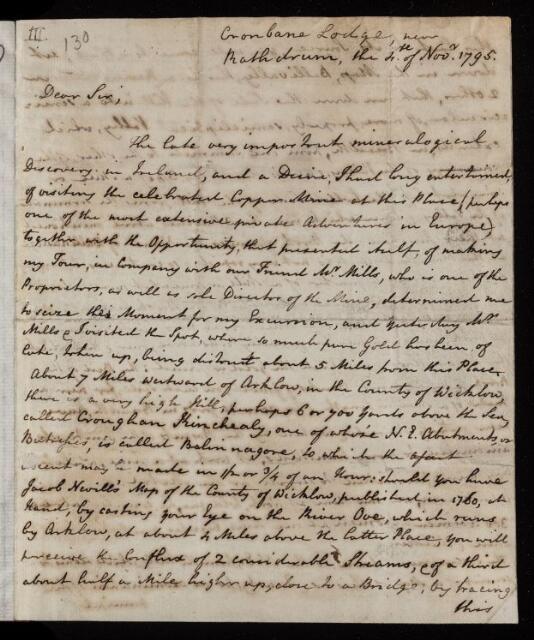 III.
130
Cronbane Lodge, near
Rathdrum, the 4th of Novr. 1795.
Dear Sir,
The late very important mineralogical
Discovery in Ireland, and a Desire, I had long entertained,
of visiting the celebrated Copper Mine at this Place (perhaps
one of the most extensive private Adventures in Europe)
together with the Opportunity, that presented itself, of making
my Tour, in Company with our Friend Mr. Mills, who is one of the
Proprietors, as well as sole Director of the Mine, determined me
to seize this Moment for my Excursion, and yesterday Mr.
Mills & I visited the Spot, where so much pure Gold has been of
late taken up, being distant about 5 Miles from this Place.
About 7 Miles westward of Arklow, in the County of Wicklow,
there is a very high Hill, perhaps 6 or 700 Yards above the Sea,
called Croughan Kinchealy, one of whose N.E. Abutments, or
Buttresses, is called Balinnagore, to which the ascent
may be made in 1/2 or 3/4 of an Hour: should you have
Jacob Nevill's Map of the County of Wicklow, published in 1760, at
Hand, by casting your Eye on the River Ovo, which runs
by Arklow, at about 4 Miles above the latter Place, you will
perceive the Conflux of 2 considerable Streams, & of a third
about half a Mile higher up, close to a Bridge; by tracing
this